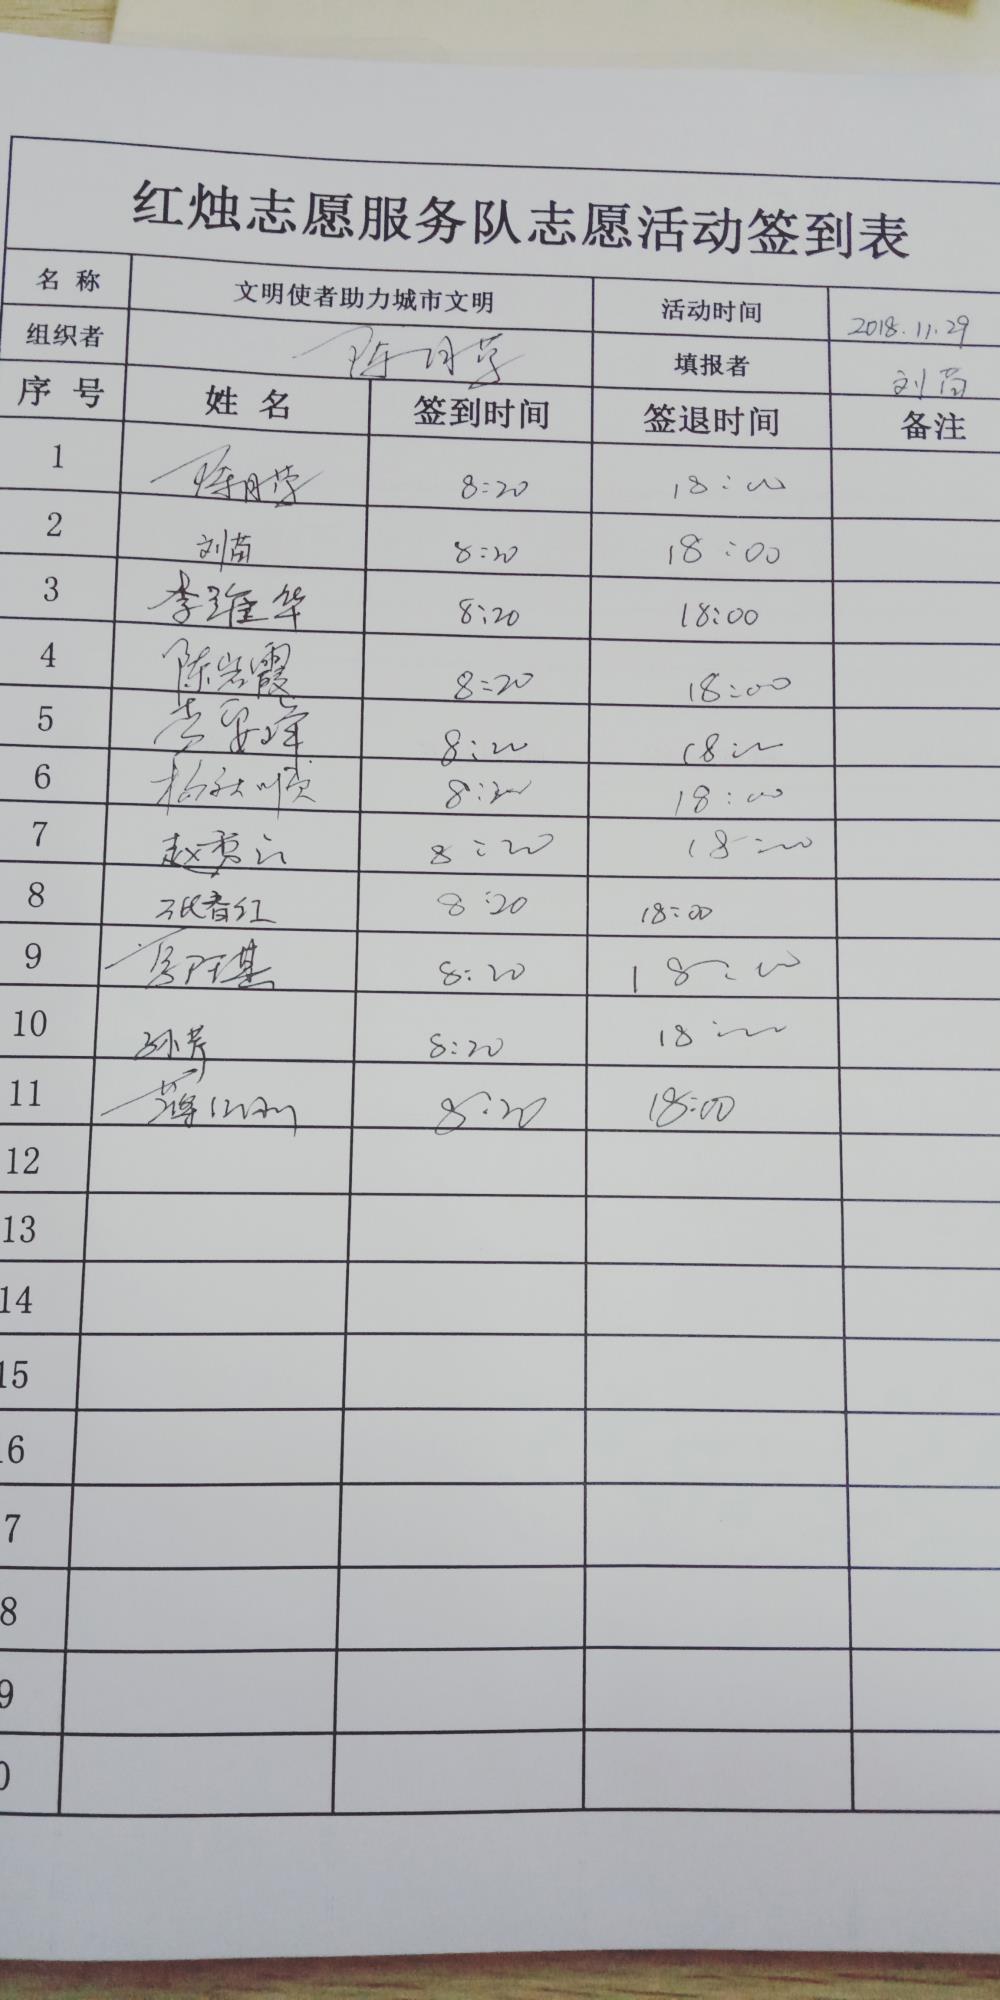 红烛志愿服务队志愿活动签到表
名 称 文明使者助力城市文明 活动时间 2018.11.29
组织者 陈月芹 填报者 刘苗
序 号 姓 名 签到时间 签退时间 备注
1 陈月芹 8:20 18:00
2 刘苗 8:20 18:00
3 李维华 8:20 18:00
4 陈岩霞 8:20 18:00
5 8:20 18:00
6 8:20 18:00
7 8:20 18:00
8 张春红 8:20 18:00
9 8:20 18:00
10 孙芹 8:20 18:00
11 8:20 18:00
12
13
14
15
6
7
8
9
0